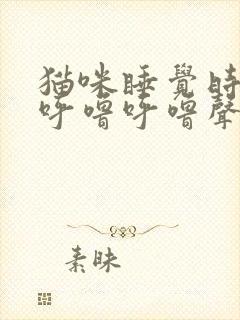 猫咪睡覺時
呼嚕呼嚕聲
素昧